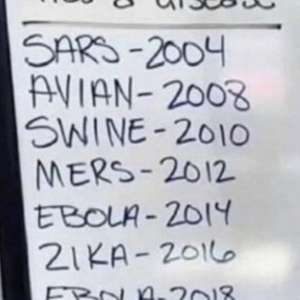 a disease
SARS-2004
AVIAN-2008
SWINE-2010
MERS-2012
EBOLA-2014
ZIKA-2016
EBOLA-2018